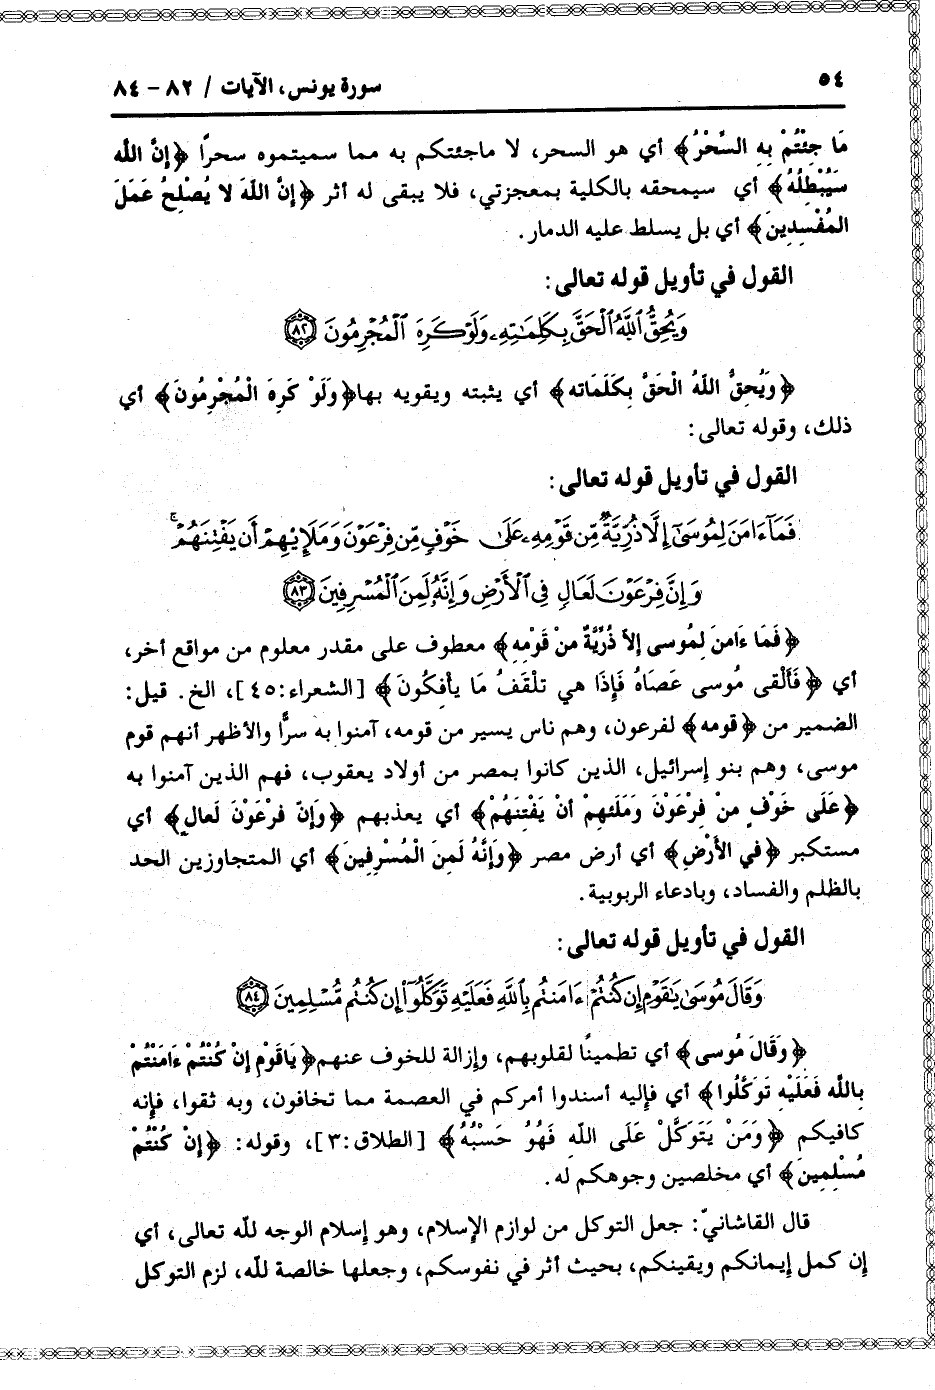 ٥٤
سورة يونس، الآيات / ٨٢ - ٨٤
مَا جِئْتُمْ بِهِ السِّحْرُ﴾ أي هو السحر، لا ماجئتكم به مما سميتموه سحراً ﴿إِنَّ اللَّه
سَيُبْطِلُهُ﴾ أي سيمحقه بالكلية بمعجزتي، فلا يبقى له أثر ﴿إِنَّ اللَّهَ لا يُصْلِحُ عَمَلَ
المُفْسِدِينَ﴾ أي بل يسلط عليه الدمار.
القول في تأويل قوله تعالى:
وَيُحِقُّ ٱللَّهُ ٱلْحَقَّ بِكَلِمَٰتِهِۦ وَلَوْ كَرِهَ ٱلْمُجْرِمُونَ ۝٨٢
﴿وَيُحِقُّ اللَهُ الْحَقَّ بِكَلَمَاته﴾ أي يثبته ويقويه بها﴿وَلَوْ كَرِهَ الْمُجْرِمُونَ﴾ أي
ذلك، وقوله تعالى:
القول في تأويل قوله تعالى:
فَمَآ ءَامَنَ لِمُوسَىٰٓ إِلَّا ذُرِّيَّةٌ مِّن قَوْمِهِۦ عَلَىٰ خَوْفٍ مِّن فِرْعَوْنَ وَمَلَإِي۟هِمْ أَن يَفْتِنَهُمْ ۚ
وَإِنَّ فِرْعَوْنَ لَعَالٍ فِى ٱلْأَرْضِ وَإِنَّهُۥ لَمِنَ ٱلْمُسْرِفِينَ ۝٨٣
﴿فَمَا ءَامنَ لِمُوسى إِلاَّ ذُرِّيَّةٌ منْ قَوْمِهِ﴾ معطوف على مقدر معلوم من مواقع أخر،
أي ﴿فَأَلْقى مُوسى عَصَاهُ فَإِذَا هي تلْقَفُ مَا يأفِكُونَ﴾ [الشعراء:٤٥]، الخ. قيل:
الضمير من ﴿قومه﴾ لفرعون، وهم ناس يسير من قومه، آمنوا به سرًّا والأظهر أنهم قوم
موسى، وهم بنو إسرائيل، الذين كانوا بمصر من أولاد يعقوب، فهم الذين آمنوا به
﴿عَلَى خَوْفٍ منْ فِرْعَوْنَ وَمَلَئهِمْ أنْ يَفْتنَهُمْ﴾ أي يعذبهم ﴿وَإنّ فرْعَوْنَ لَعالٍ﴾ أي
مستكبر ﴿في الأَرْضِ﴾ أي أرض مصر ﴿وَإنَّهُ لَمنَ الْمُسْرِفينَ﴾ أي المتجاوزين الحد
بالظلم والفساد، وبادعاء الربوبية.
القول في تأويل قوله تعالى:
وَقَالَ مُوسَىٰ يَٰقَوْمِ إِن كُنتُمْ ءَامَنتُم بِٱللَّهِ فَعَلَيْهِ تَوَكَّلُوٓا۟ إِن كُنتُم مُّسْلِمِينَ ۝٨٤
﴿وَقَالَ مُوسى﴾ أي تطمينًا لقلوبهم، وإزالة للخوف عنهم﴿يَاقَوْمِ إِنْ كُنْتُمْ ءَامَنْتُمْ
بِاللَّه فَعَلَيْهِ تَوَكَّلُوا﴾ أي فإليه أسندوا أمركم في العصمة مما تخافون، وبه ثقوا، فإنه
كافيكم ﴿وَمَنْ يَتَوَكَّلْ عَلَى اللَّهِ فَهُوُ حَسْبُهُ﴾ [الطلاق:٣]، وقوله: ﴿إِنْ كُنْتُمْ
مُسْلِمِينَ﴾ أي مخلصين وجوهكم له.
قال القاشانيّ: جعل التوكل من لوازم الإسلام، وهو إسلام الوجه للّه تعالى، أي
إن كمل إيمانكم ويقينكم، بحيث أثر في نفوسكم، وجعلها خالصة للّه، لزم التوكل